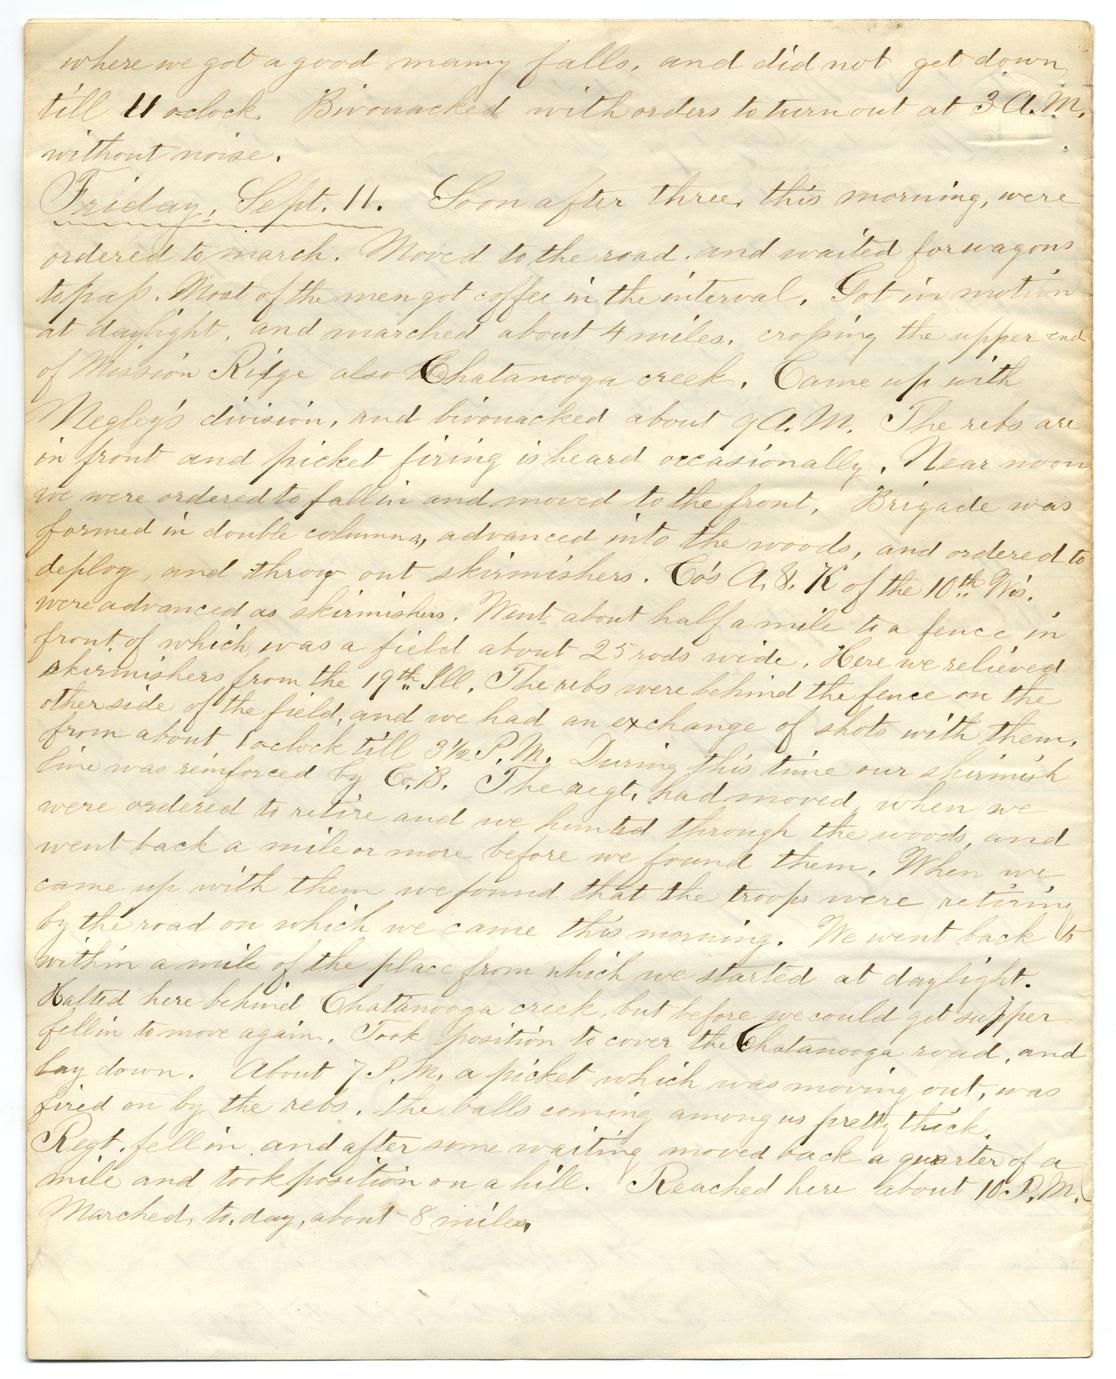 where we got a good many falls, and did not get down
till 11 oclock. Bivouacked with orders to turn out at 3 A.M.
without noise.
Friday, Sept. 11. Soon after three, this morning, were
ordered to march. Moved to the road. and waited for wagons
to pass. Most of the men got coffee in the interval. Got in motion
at daylight, and marched about 4 miles. crossing the upper end
of Mission Ridge also Chatanooga creek. Came up with
Negley's division, and bivouacked about 9 A.M. The rebs are
in front and picket firing is heard occasionally. Near noon
we were ordered to fall in and moved to the front. Brigade was
formed in double columns, advanced into the woods, and ordered to
deploy, and throw out skirmishers. Co's A. & K of the 10th Wis.
were advanced as skirmishers. Went about half a mile to a fence in
front of which was a field about 25 rods wide. Here we relieved
skirmishers from the 19th Ill. The rebs were behind the fence on the
other side of the field, and we had an exchange of shots with them,
from about 1 oclock till 3½ P.M. During this time our skirmish
line was reinforced by Co. B. The regt. had moved, when we
were ordered to retire and we hunted through the woods, and
went back a mile or more before we found them. When we
came up with them we found that the troops were retiring
by the road on which we came this morning. We went back to
within a mile of the place from which we started at daylight.
Halted here behind Chatanooga creek, but before we could get supper
fell in to move again. Took position to cover the Chatanooga road, and
lay down. About 7 P.M. a picket which was moving out, was
fired on by the rebs. the balls coming among us pretty thick.
Regt. fell in and after some waiting moved back a quarter of a
mile and took position on a hill. Reached here about 10 P.M.
Marched, to, day, about 8 miles.